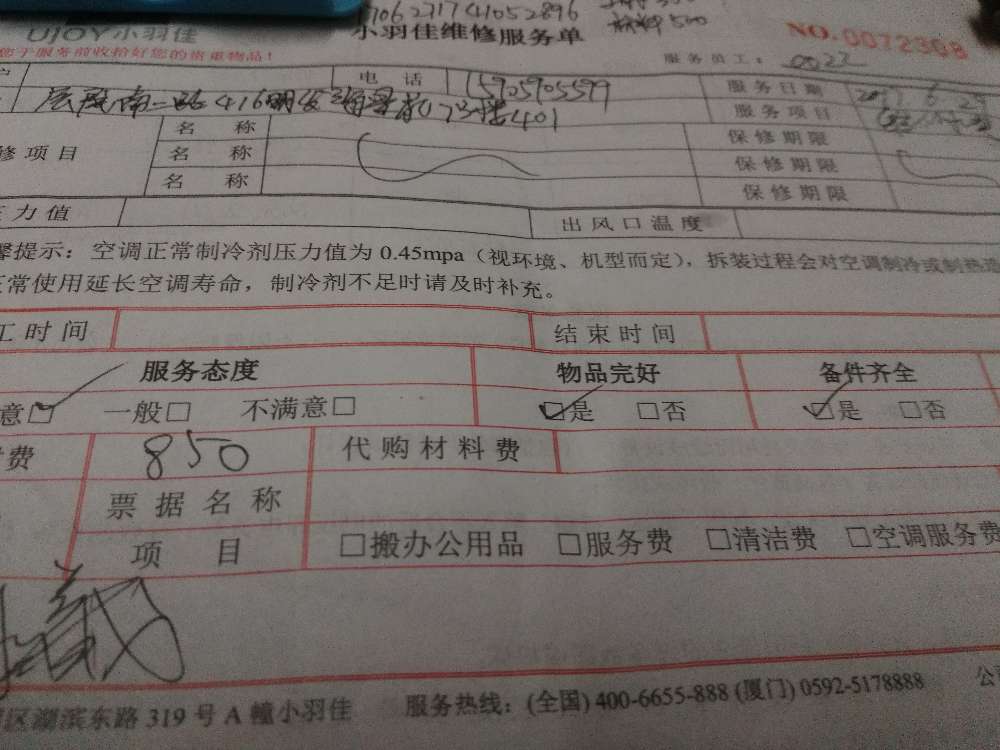 1706231741052896
材料500
UJOY小羽佳
小羽佳维修服务单
NO.0072308
您于服务前收拾好您的贵重物品!
服务员工: 0023
电 话 15905905599
服务日期
南二路416明发 401
服务项目
名 称
保修期限
修项目
名 称
保修期限
名 称
保修期限
压力值
出风口温度
馨提示: 空调正常制冷剂压力值为 0.45mpa (视环境、机型而定), 拆装过程会对空调制冷或制热造
正常使用延长空调寿命, 制冷剂不足时请及时补充。
工时间
结束时间
服务态度
物品完好
备件齐全
意☑ 一般□ 不满意□
☑是 □否
☑是 □否
费 850
代购材料费
票据名称
项 目
□搬办公用品 □服务费 □清洁费 □空调服务费
区湖滨东路 319 号 A 幢小羽佳
服务热线: (全国) 400-6655-888 (厦门) 0592-5178888